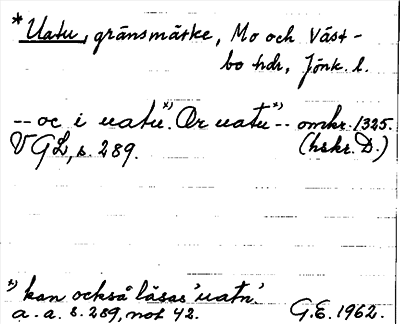 *Uatu, gränsmärke, Mo och Väst-
bo hdr, Jönk. l.
-- oc i uatu.*) Or uatu*) -- omkr. 1325.
VGL, s. 289. (hskr. D.)
*) kan också läsas 'uatn'.
a. a. s. 289, not 42. G.E. 1962.